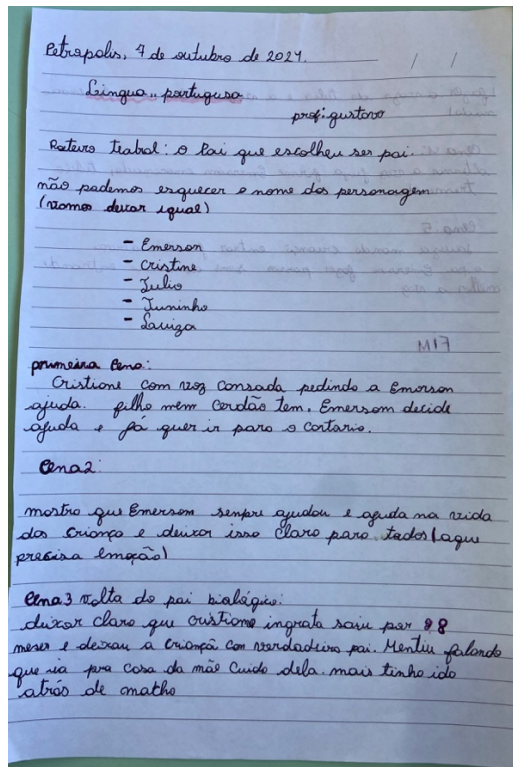 Petrapolis, 7 de outubro de 2021.
/ /
Lingua,, portuguesa
prof: gustavo
Roteiro teatral: o Pai que escolheu ser pai.
não podemos esquecer o nome dos personagem
(vamos deixar igual)
- Emerson
- Cristine
- Julio
- Juninho
- Lauiza
primeira Cena:
Cristione com voz cansada pedindo a Emerson
ajuda. filho nem Cerdão tem. Emerson decide
ajuda e já quer ir para o cartorio.
Cena2:
mostro que Emerson sempre ajudou e ajuda na vida
das criança e deixar isso claro para todos (aque
precisa emoção)
Cena 3 volta do pai biológico:
deixar claro que cristione ingrata saiu por 8
meses e deixau a criança con verdadeiro pai. Mentiu falando
que ia pra casa da mãe cuido dela. mais tinha ido
atrás de matho